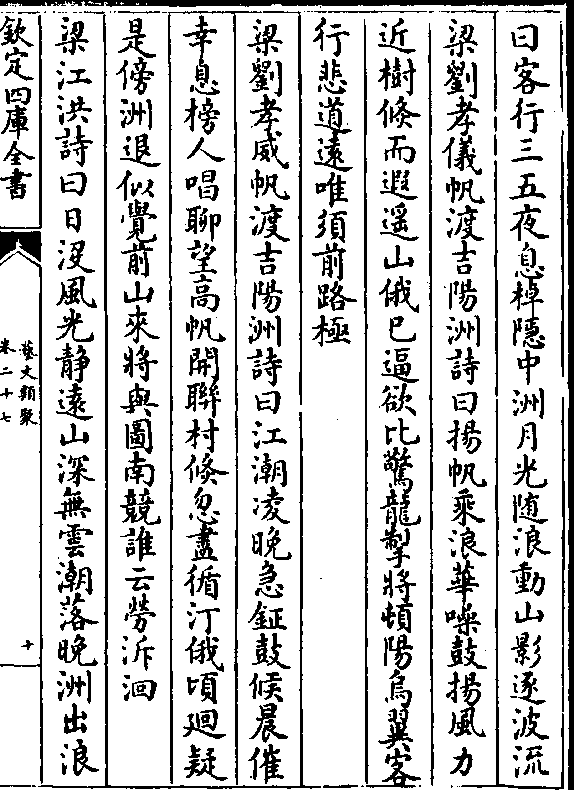 曰客行三五夜息棹隱中洲月光随浪動山影逐波流
梁劉孝儀帆渡吉陽洲詩曰揚帆乘浪華噪鼓揚風力
近樹倐而遐遥山俄已逼欲比驚龍掣將頓陽烏翼客
行悲道遠唯須前路極
梁劉孝威帆渡吉陽洲詩曰江潮凌晚急鉦鼓候晨催
幸息榜人唱聊望高帆開聯村倐忽盡循汀俄頃廻疑
是傍洲退似覺前山來將與圖南競誰云勞泝洄
梁江洪詩曰日沒風光静遠山深無雲潮落晚洲出浪
欽定四庫全書
藝文類聚
卷二十七
十